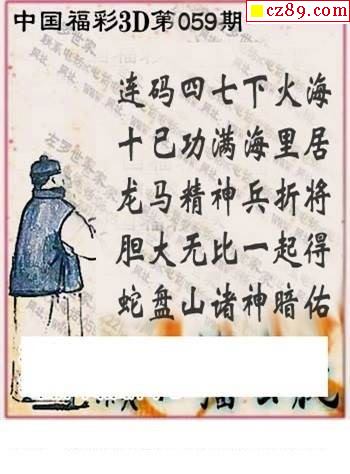 cz89.com
中国福彩3D第059期
连码四七下火海
十已功满海里居
龙马精神兵折将
胆大无比一起得
蛇盘山诸神暗佑